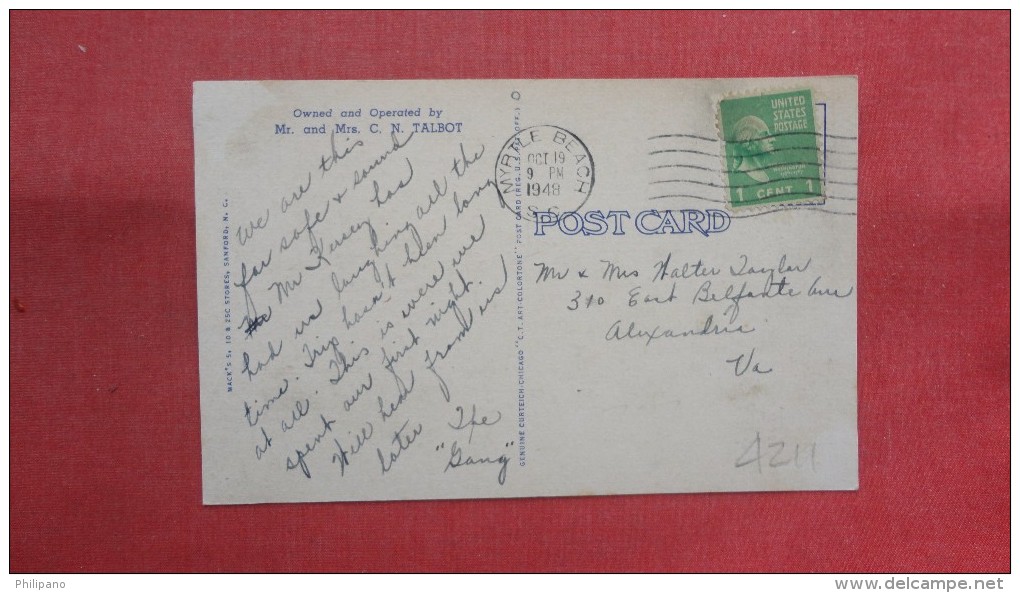 Owned and Operated by
Mr. and Mrs. C. N. TALBOT
We are this
far safe & sound
Mr Kersey has
had us laughing all the
time. Trip hasn't been long
at all. This is were we
spent our first night.
Will hear from us
later The
"Gang"
MACK'S 5, 10 & 25C STORES, SANFORD, N. C.
GENUINE CURTEICH-CHICAGO "C.T. ART-COLORTONE" POST CARD (REG. U.S. PAT. OFF.)
MYRTLE BEACH
OCT 19
9 PM
1948
S. C.
UNITED
STATES
POSTAGE
1 CENT 1
POST CARD
Mr & Mrs Walter Taylor
310 East Belfonte Ave
Alexandria
Va
4211
Philipano
www.delcampe.net